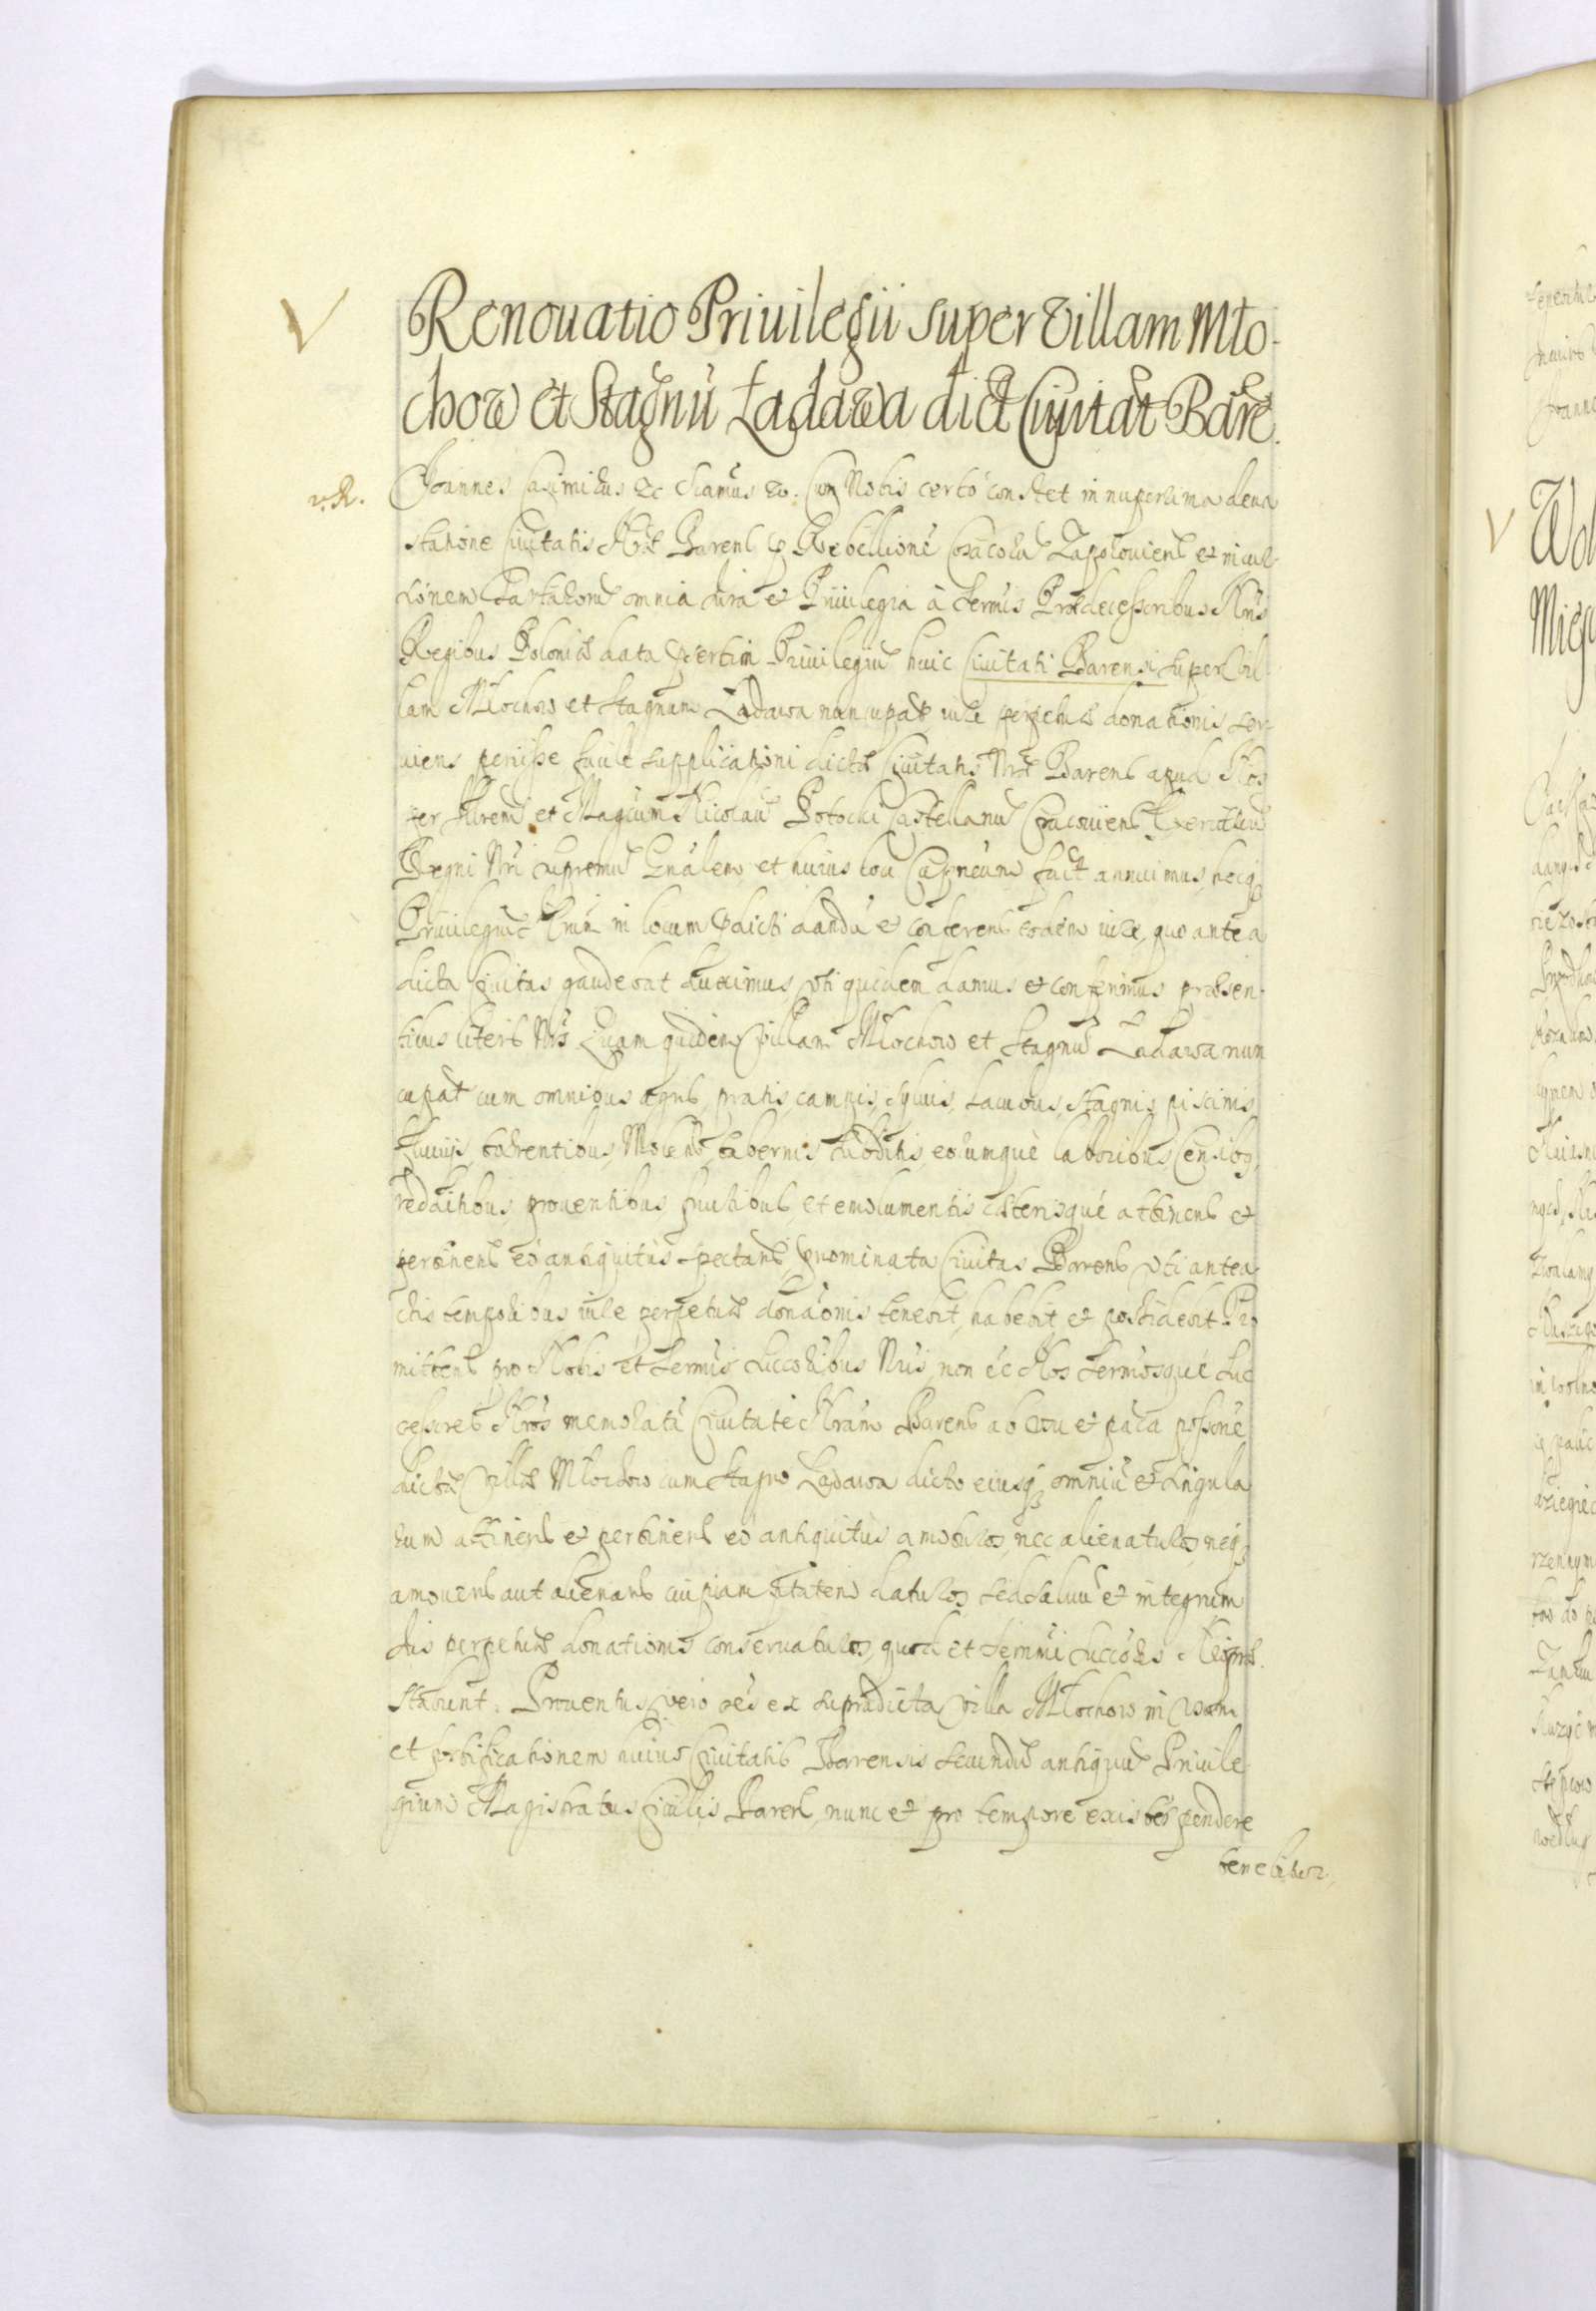 Renouatio Priuilegii super Villam Mło-
chow et Stagnũ Ładawa dict Ciuitat Barẽ.
v. R. Joannes Casimirus &c Sciamus &c. Cum Nobis certò constet in nuperrima deua
statione Ciuitatis Nræ Barens Rebellionẽ Cosacorũ Zaporouiens et incur
sionem Tartarorũ omnia Iura et Priuilegia à Sermis Prædecessoribus Nris
Regibus Poloniæ data Priuilegiũ huic Ciuitati Barensi super Vil
lam Młochow et Stagnum Ładawa nuncupat iure perpetuæ donationis ser
uiens periisse supplicationi dictæ Ciuitatis Nræ Barens apud Nos
per et Magcum Nicolaũ Potocki Castellanũ Cracouiens Exercituũ
Regni Nri Supremũ Gnãlem et huius loci annuimus, hocq
Priuilegiũ in locum dandũ et conferens eodem iure, quo antea
dicta Ciuitas gaudebat duximus, vti quidem damus et conferimus præsen
tibus literis Nris. Quam quidem Villam Młochow et Stagnũ Ładawa nun
cupat cum omnibus agris, pratis, campis, syluis, lacubus, stagnis, piscinis,
fluuijs, torrentibus, Molend, tabernis, subditis, eorumque laboribus, Censibq,
redditibus, prouentibus, fructibus, et emolumentis cæterisque attinens et
pertinens eò antiquitus spectans, prominata Ciuitas Barens vti antea
ctis temporibus iure perpetuæ donãonis tenebit, habebit, et possidebit. Pro
mittens pro Nobis et Sermis Succoribus Nris, non Nos Sermosque Suc
cessores Nros memoratã Ciuitatẽ Nram Barens ab vsu et
dictæ Villæ Młochow cum Stagno Ładawa dicto eiusq omniũ et singula
rum attinens et pertinens eò antiquitus amoturos, nec alienaturos, neq
amouens aut alienans cuipiam datuos, sed saluũ et integrum
Ius perpetuæ donationis conseruaturos, quod et Sermi Succores Nri
stabunt. Prouentus vero ex supradicta Villa Młochow in
et fortificationem huius Ciuitatis Barensis secundũ antiquũ Priuile
gium Magistratus Ciuilis Barens, nunc et pro tempore pendere
tenebitur,